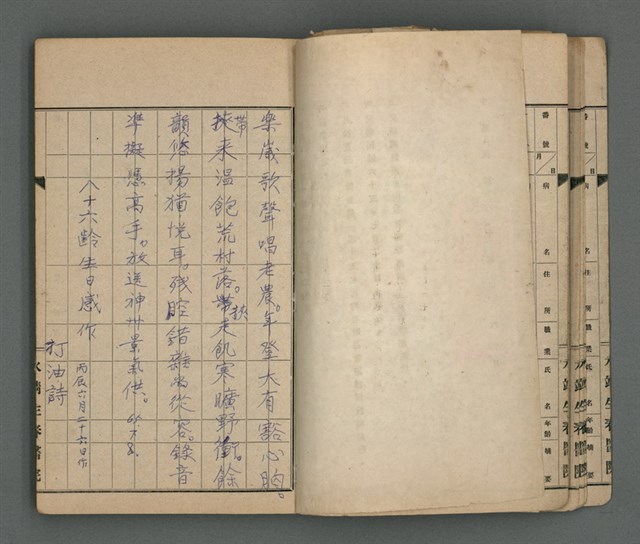 番號
月 日
病名
住所
職業
氏名
年齡
摘要
番號
月 日
病名
住所
職業
氏名
年齡
摘要
樂歲歌聲唱老農。年登大有豁心胸。
挾帶來溫飽荒村落。帶挾走飢寒曠野衝。餘
韻悠揚猶悅耳。殘腔錯雜尚從容。錄音
準擬憑高手。放送神州景氣供。
八十六齡生日感作
打油詩
丙辰六月二十六日作